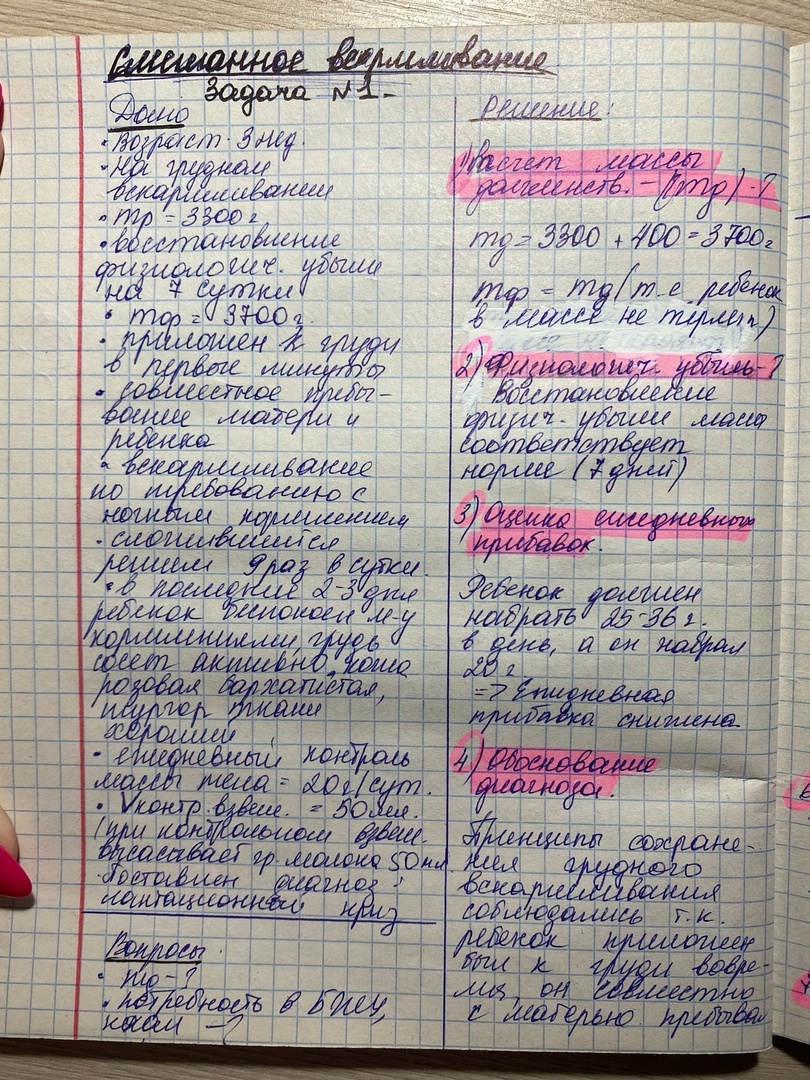 Смешанное вскармливание
Задача №1.
Дано
• Возраст - 3 нед.
• на грудном
вскармливании
• mр = 3300 г
• восстановление
физиологич. убыли
на 7 сутки
• mф = 3700 г.
• приложен к груди
в первые минуты
• совместное пребы-
вание матери и
ребенка
• вскармливание
по требованию с
ночным кормлением
• сложившийся
режим 9 раз в сутки.
• в последние 2-3 дня
ребенок беспокоен м-у
кормлениями, грудь
сосёт активно, кожа
розовая бархатистая,
тургор ткани
хороший
• ежедневный контроль
массы тела = 20 г/сут.
• Vконтр. взвеш. = 50 мл.
(при контрольном взвеш.
высасывает гр. молока 50 мл.
Поставлен диагноз:
лактационный криз
Вопросы
• mд - ?
• потребность в БЖУ,
ккал - ?
Решение:
1) Расчет массы
долженств. - (mд) - ?
mд = 3300 + 400 = 3700 г
mф = mд (т.е. ребенок
в массе не терял)
2) Физиологич. убыль - ?
Восстановление
физич. убыли массы
соответствует
норме (7 дней)
3) Оценка ежедневных
прибавок.
Ребенок должен
набрать 25-36 г.
в день, а он набрал
20 г
=> Ежедневная
прибавка снижена
4) Обоснование
диагноза.
Принципы сохране-
ния грудного
вскармливания
соблюдались т.к.
ребенок приложен
был к груди вовре-
мя, он совместно
с матерью пребывал